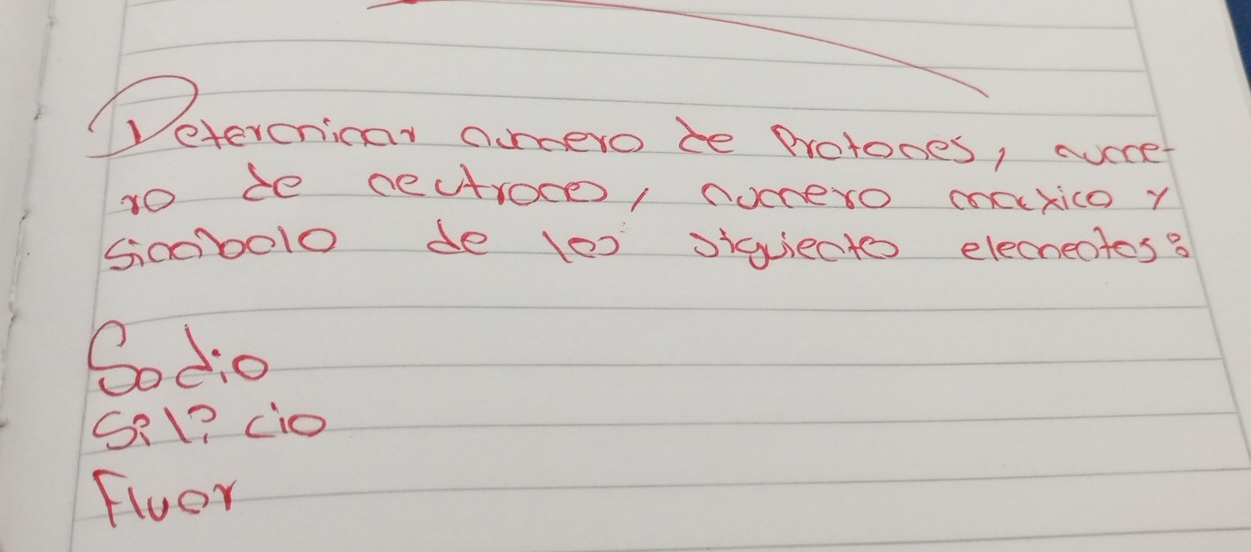 Determinar numero de Protones, nume-
ro de neutrones, numero maxico y
simbolo de los siguientes elementos:
Sodio
Silicio
Fluor